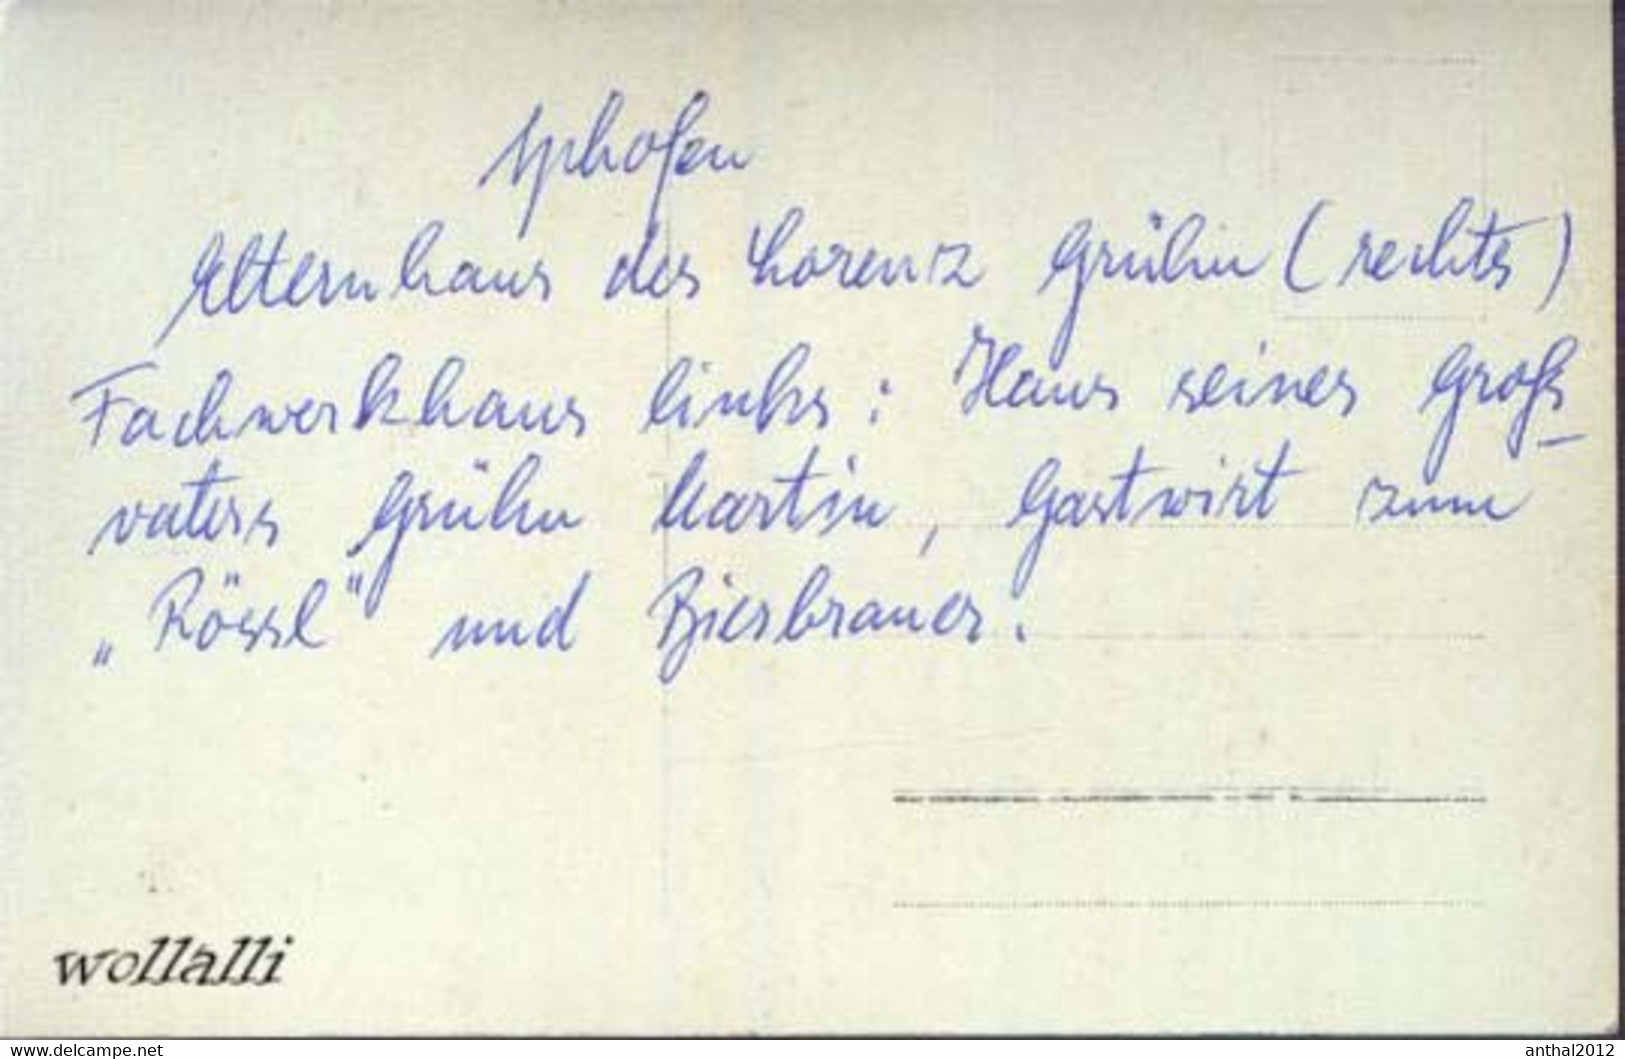 Iphofen
Elternhaus des Lorenz Grühn (rechts)
Fachwerkhaus links: Haus seines Groß-
vaters Grühn Martin, Gastwirt zum
„Rössl" und Bierbrauer.
wollalli
www.delcampe.net
anthal2012